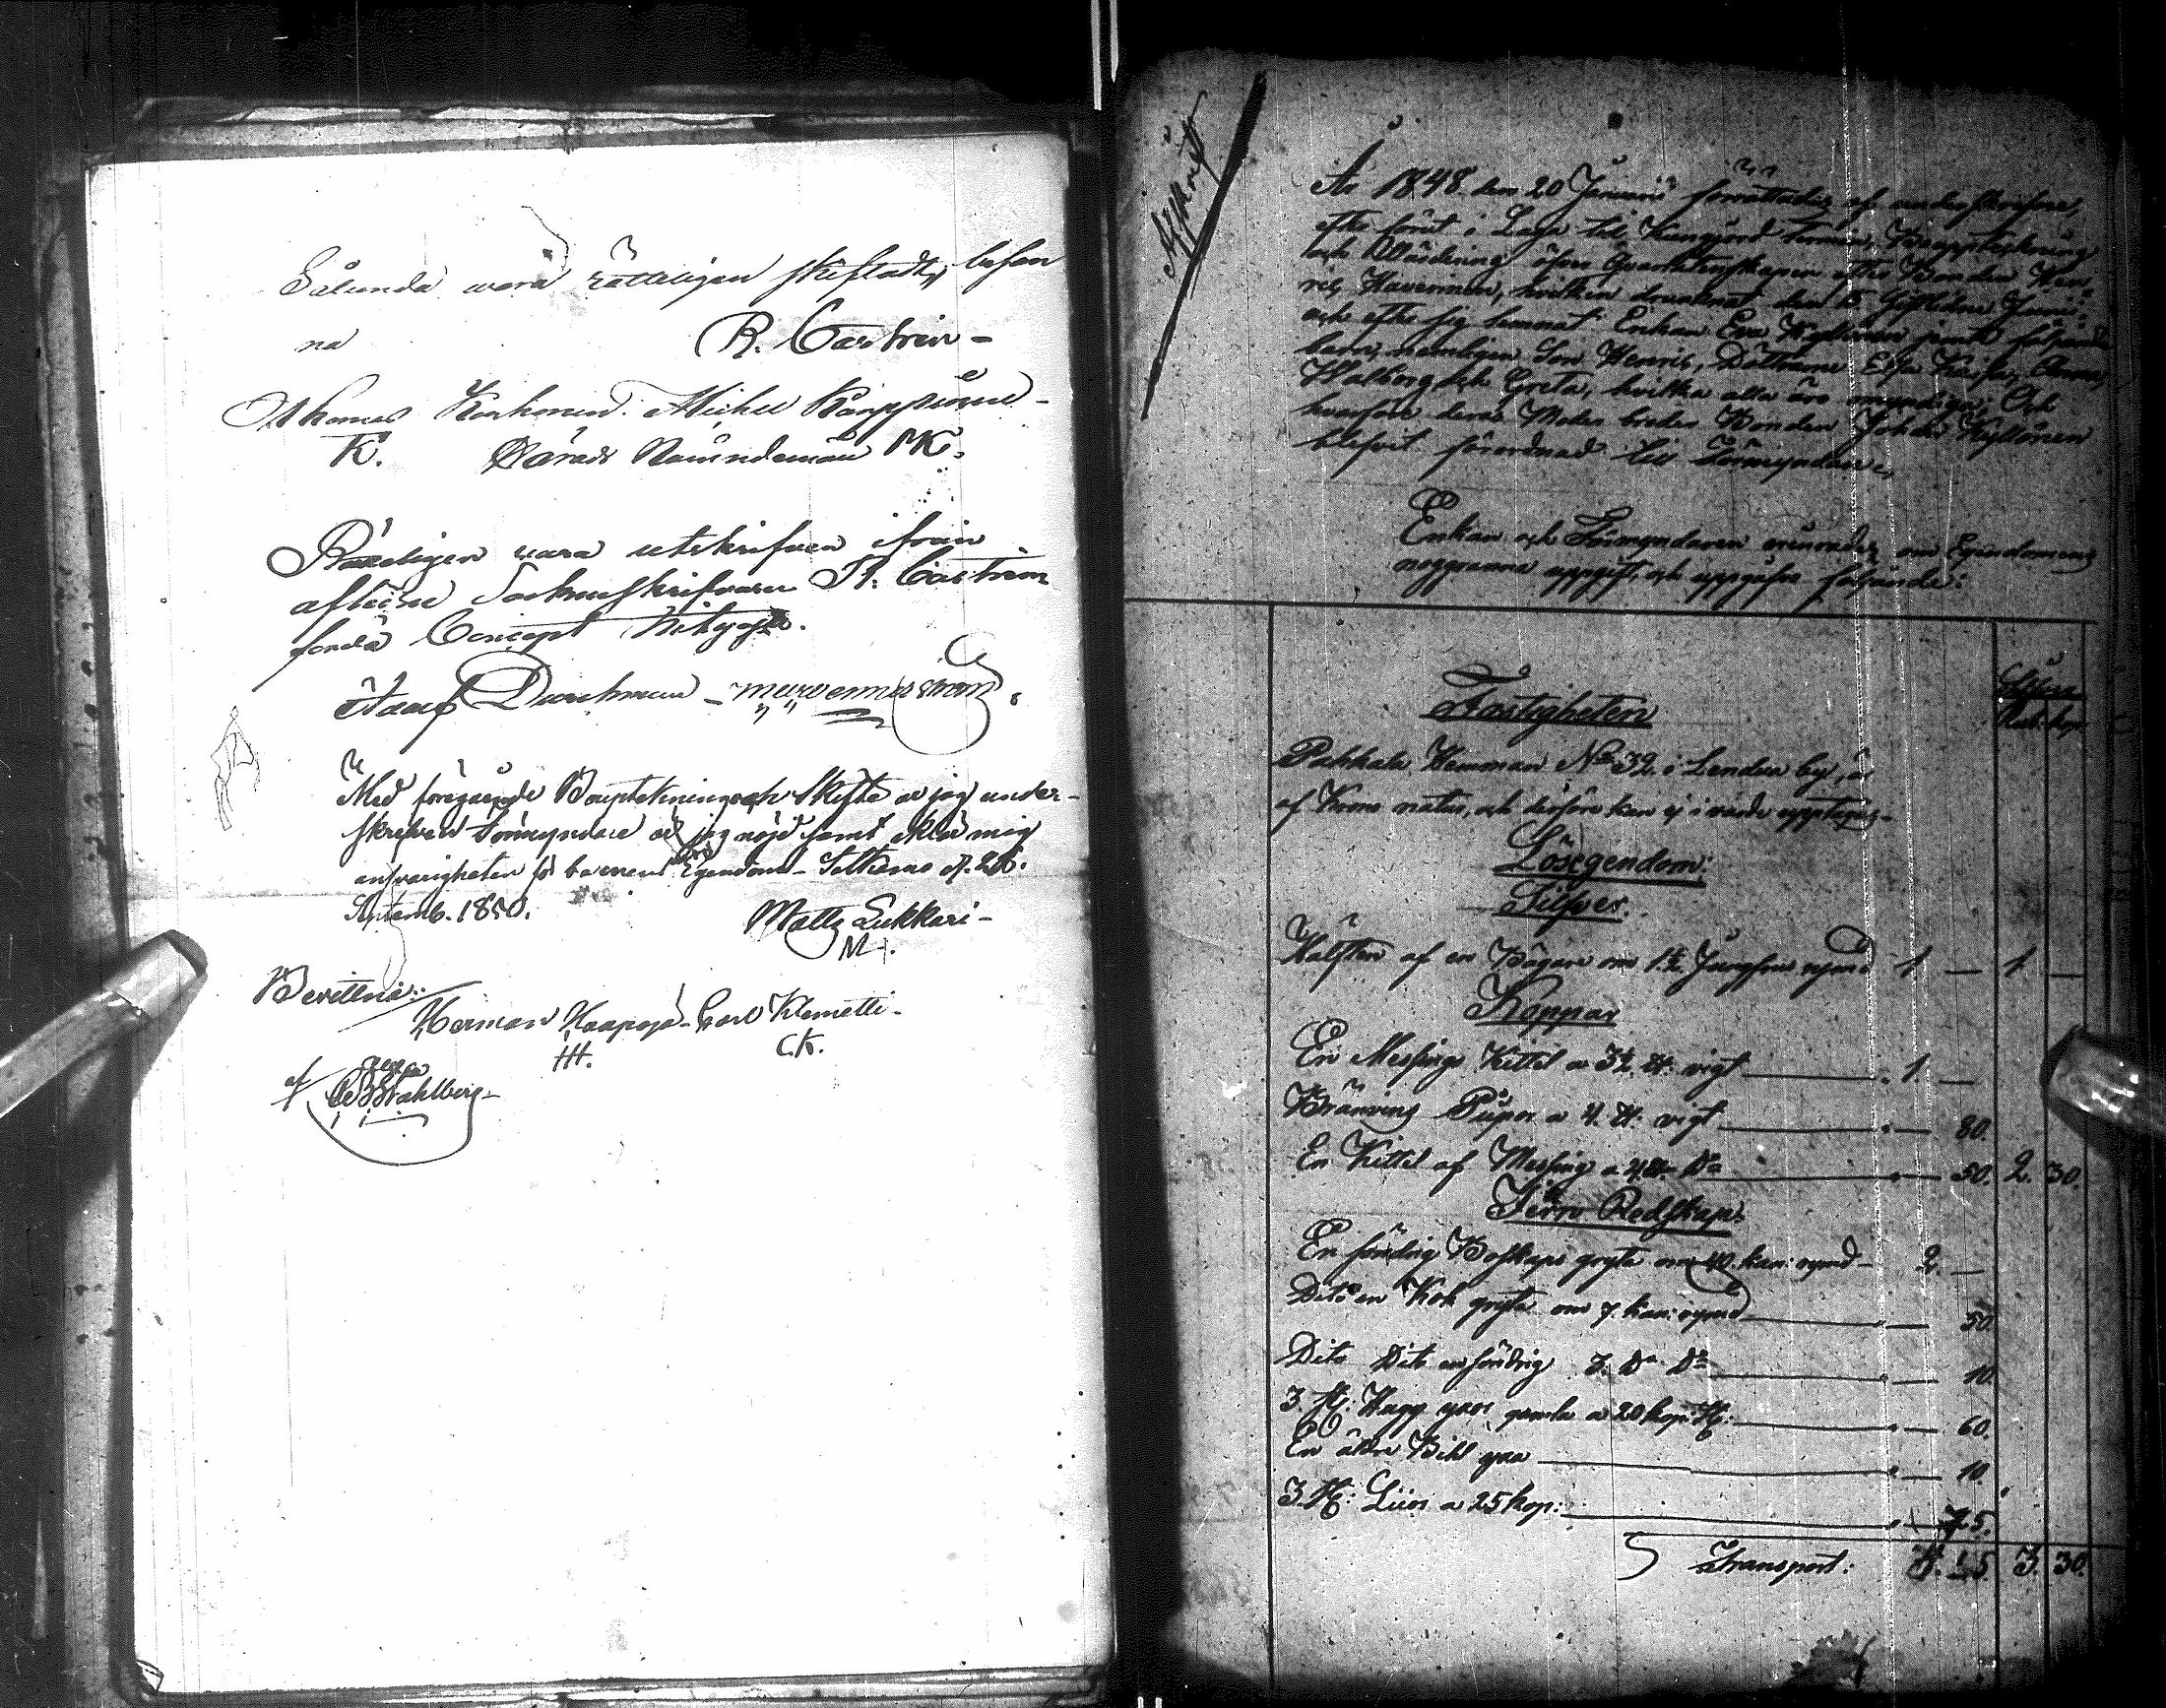 Sålunda vara rätteligen skiftadt, befan
na
R. Castrén -
Thomas Korhonen. Michel Karppinen -
K. Härads Nämndemän MK.
Rätteligen vara utskrifven ifrån
aflidne Sockneskrifvaren R. Castréns
Concept betygar.
Isaac Durchman
Med föregående Bouptekning och Skifte är jag under-
skrefven Förmyndare nöjd samt iklär mig
ansvarigheten för barnens Egendom - Sotkamo d. 26.
Septemb. 1850.
Matts Lukkari -
M.
Bevittna:
Herman Haapoja - Carl Klemetti -
HH. C.K.
af
Wahlberg -
Afskrift
År 1848 den 20 Januarii förrättades af undertecknad,
efter förut i Laga tid Kungjord termin, Bouppteckning
och Värdering öfver Qvarlåtenskapen efter Bonden Hen-
rik Haverinen, hvilken drunknat den 15 sistledne Junii
och efter sig lemnat Enkan Eva Kyllönen jemte följande
barn, nemligen Son Henric, Döttrarne Elsa Kaisa, Anna,
Walborg och Greta, hvilka alla äro omyndige; Och
hvarföre deras Moder broder Bonden Johan Kyllönen
blefvit förordnad till Förmyndare,
Enkan och Förmyndaren erinrades om Egendomens
noggranna uppgift, och uppgåfvo följande:
Silfver
Rub. kop.
Fastigheten
Pakkala Hemman No 32 i Lendua by, är
af Krono natur, och derföre kan ej i värde upptagas -
Lösegendom:
Silfver.
Hälften af en Bägare om 1 1/2 Jungfrus rymd 1 — 1 —
Koppar
En Messings Kittel a 3 1/2 ℔: vigt — 1. —
Bränvins Pipor a 4. ℔: vigt — 80.
En Kittel af Messing a 4 ℔. Do — 50. 2. 30.
Jern Redskap.
En söndrig Boskaps gryta om 40. kan: rymd - 2. —
Dito en Kok gryta om 7. kan: rymd — 50.
Dito Dito en söndrig 3. Do Do — 10.
3. St: Hugg yxor gamla a 20 kop: St: — 60.
En äldre Bihl yxa — 10.
3. St: Liior a 25 kop: — 75.
Transport: 3. 30.